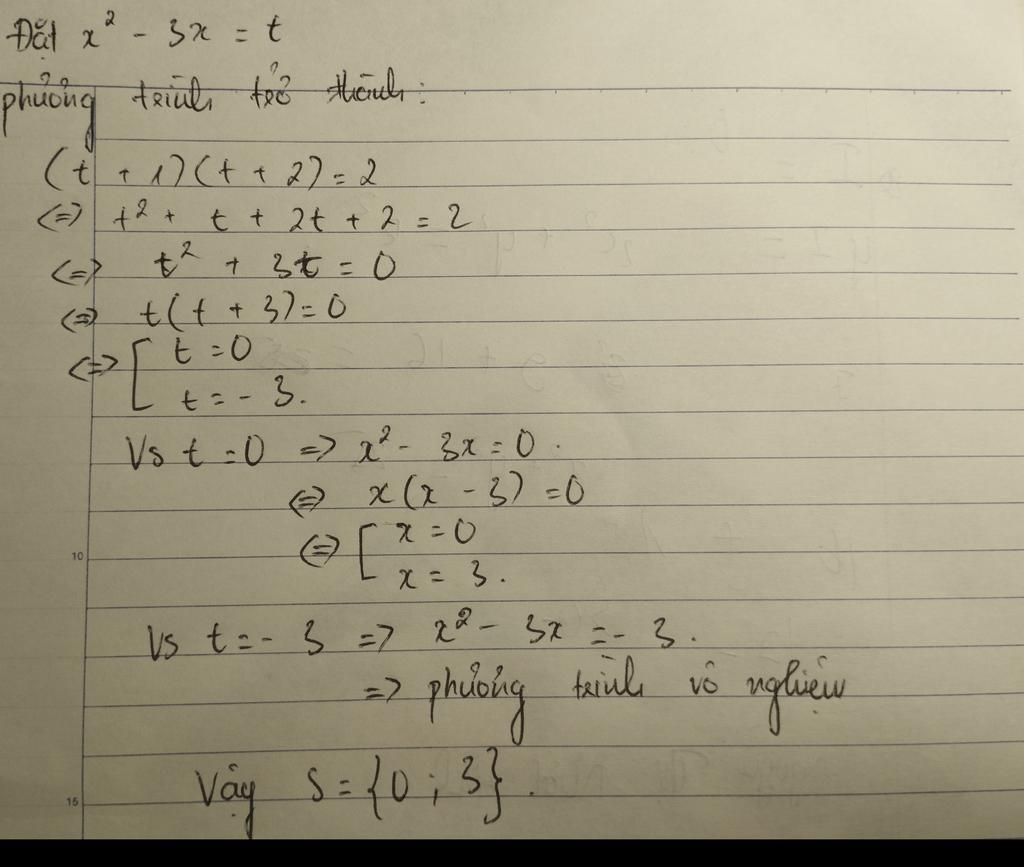 Đặt x² - 3x = t
phưởng trình trở thành:
(t + 1)(t + 2) = 2
<=> t² + t + 2t + 2 = 2
<=> t² + 3t = 0
<=> t(t + 3) = 0
<=> [ t = 0
t = - 3.
Vs t = 0 => x² - 3x = 0.
<=> x(x - 3) = 0
<=> [ x = 0
10
x = 3.
Vs t = - 3 => x² - 3x = - 3.
=> phưởng trình vô nghiệm
Vậy S = {0 ; 3}.
15